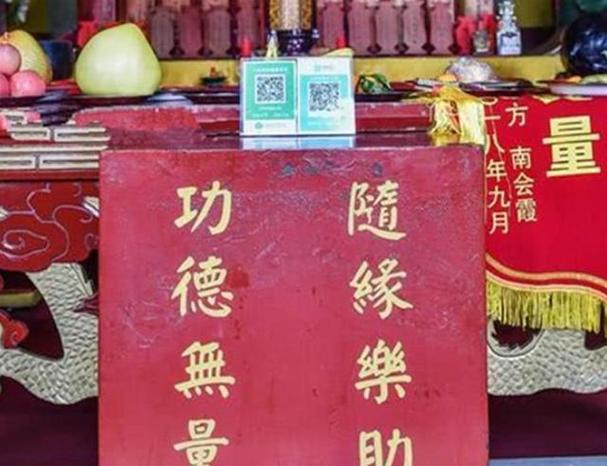 隨緣樂助
功德無量
量
方 南会霞
一八年九月